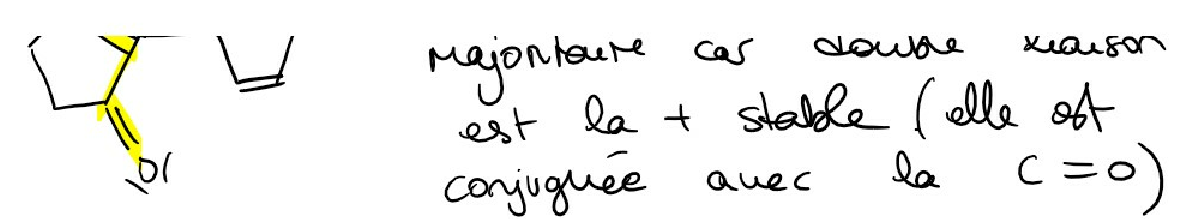 majoritaire car double liaison
est la + stable (elle est
conjuguée avec la C=O)
O